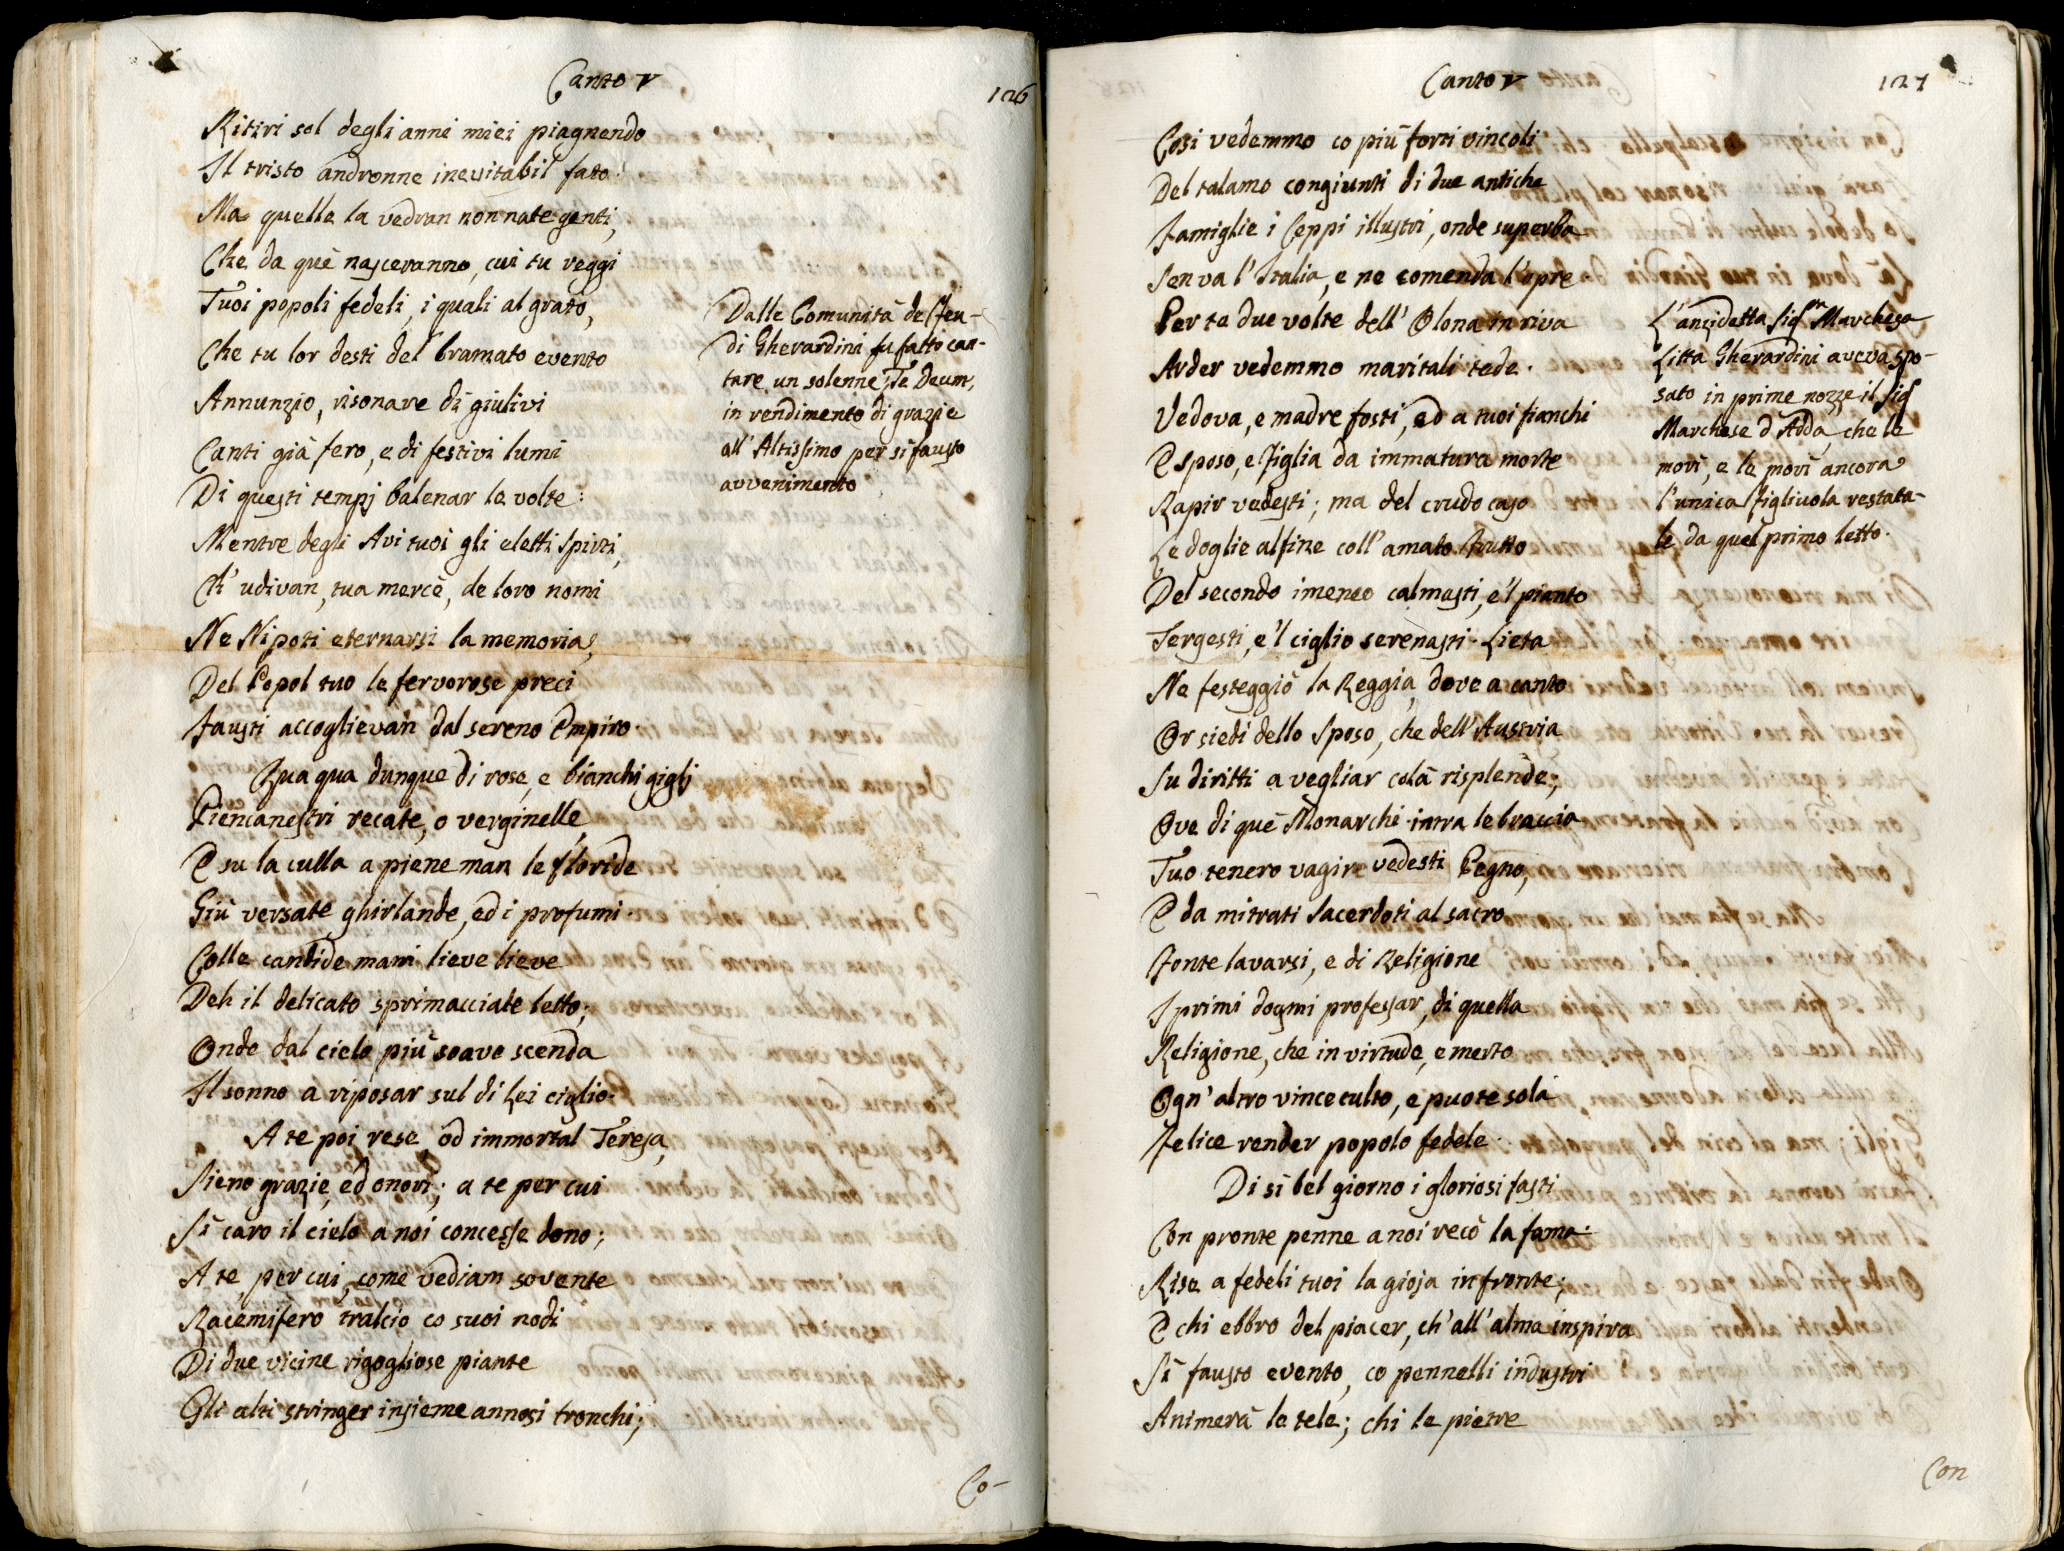 Canto V
126
Ritiri sol degli anni miei piagnendo
Il tristo andronne inevitabil fato:
Ma quelle la vedran non nate genti,
Che da què nasceranno, cui tu veggi
Tuoi popoli fedeli, i quali al grato,
Che tu lor desti del bramato evento
Annunzio, risonare di giulivi
Canti già fero, e di festivi lumi
Di questi tempj balenar le volte:
Mentre degli Avi tuoi gli eletti Spirti,
Ch' udivan, tua mercè, de loro nomi
Ne Nipoti eternarsi la memoria,
Del Popol tuo le fervorose preci
Fausti accoglievan dal sereno Empiro.
Qua qua dunque di rose, e bianchi giglj
Pien canestri recate, o verginelle,
E su la culla a piene man le floride
Giù versate ghirlande, ed i profumi.
Colle candide mani lieve lieve
Deh il delicato sprimacciate letto;
Onde dal cielo più soave scenda
Il sonno a riposar sul di Lei ciglio.
A te poi rese, od immortal Teresa,
Sieno grazie, ed onori; a te per cui
Sì caro il cielo a noi concesse dono;
A te, per cui, come vediam sovente
Racemifero tralcio co suoi nodi
Di due vicine rigogliose piante
Gli alti stringer insieme annosi tronchi;
Co-
Dalle Comunità de Feu-
di Gherardini fu fatto can-
tare un solenne Te Deum,
in rendimento di grazie
all' Altissimo per sì fausto
avvenimento
Canto V
127
Così vedemmo co più forti vincoli
Del talamo congiunti di due antiche
Famiglie i Ceppi illustri, onde superba
Sen va l' Italia, e ne comenda l' opre
Per te due volte dell' Olona in riva
Arder vedemmo maritali tede.
Vedova, e madre fosti, ed a tuoi fianchi
E sposo, e Figlia da immatura morte
Rapir vedesti; ma del crudo caso
Le doglie alfine coll' amato frutto
Del secondo imeneo calmasti, e 'l pianto
Tergesti, e 'l ciglio serenasti. Lieta
Ne festeggiò la Reggia, dove a canto
Or siedi dello Sposo, che dell' Austria
Su diritti a vegliar colà risplende;
Ove di què Monarchi intra le braccia
Tuo tenero vagire vedesti Pegno,
E da mitrati Sacerdoti al sacro
Fonte lavarsi, e di Religione
I primi dogmi professar, di quella
Religione, che in virtude, e merto
Ogn' altro vince culto, e puote sola
Felice render popolo fedele.
Di sì bel giorno i gloriosi fasti
Con pronte penne a noi recò la fama.
Rise a fedeli tuoi la gioja in fronte;
E chi ebbro del piacer, ch' all' alma inspira
Sì fausto evento, co pennelli industri
Animerà le tele; chi le pietre
Con
L' anzidetta Sig.ra Marchesa
Litta Gherardini aveva spo-
sato in prime nozze il Sig.
Marchese d' Adda, che le
morì, e le morì ancora
l' unica figliuola restata-
le da quel primo letto.